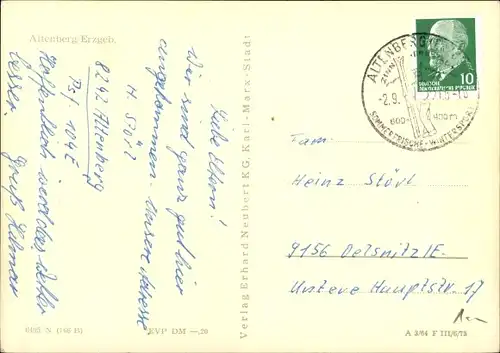 Altenberg/Erzgeb.
Liebe Eltern!
Wir sind ganz gut hier
angekommen. Unsere Adresse
H. Stövl
8242 Altenberg
Psf. 104 E
Hoffentlich wird das Wetter
besser. Gruß Helmar
Verlag Erhard Neubert KG, Karl-Marx-Stadt
EVP DM —,20
ALTENBERG
-2.9.
SOMMERFRISCHE · WINTERSPORT
10
DEUTSCHE
DEMOKRATISCHE REPUBLIK
Fam.
Heinz Stövl
9156 Oelsnitz/E.
Untere Hauptstr. 17
A 3/64 F III/6/73